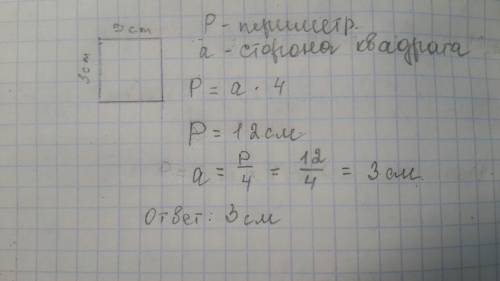 3 cm
P - периметр.
3 cm
a - сторона квадрата
P = a · 4
P = 12 см
a = P/4 = 12/4 = 3 см
Ответ: 3 см